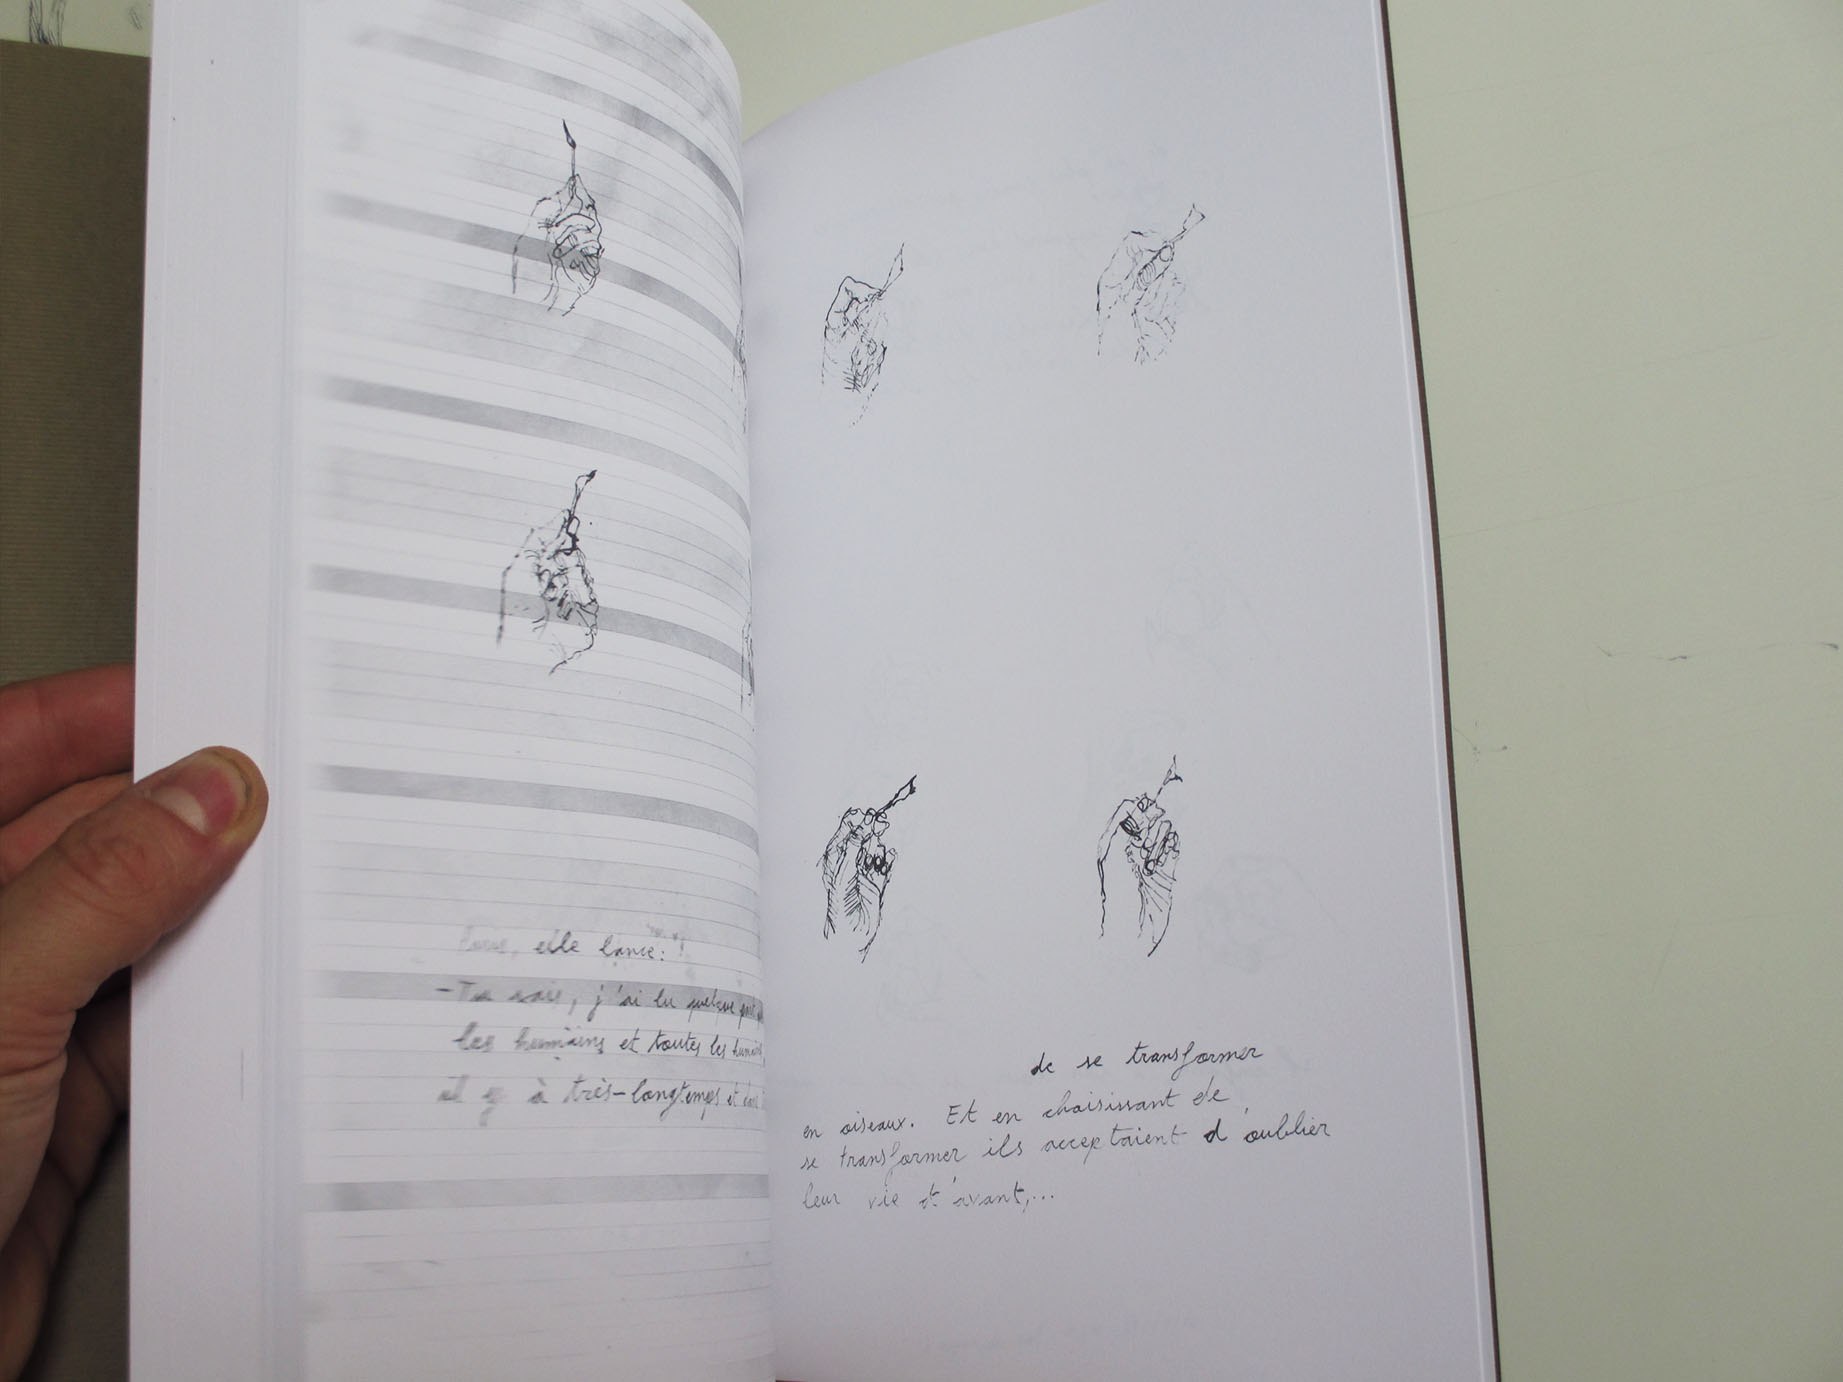 Puis, elle lance:
- Tu sais, j'ai lu quelque part
les humains et toutes les humaines
il y à très-longtemps et dans
de se transformer
en oiseaux. Et en choisissant de
se transformer ils acceptaient d'oublier
leur vie d'avant,...